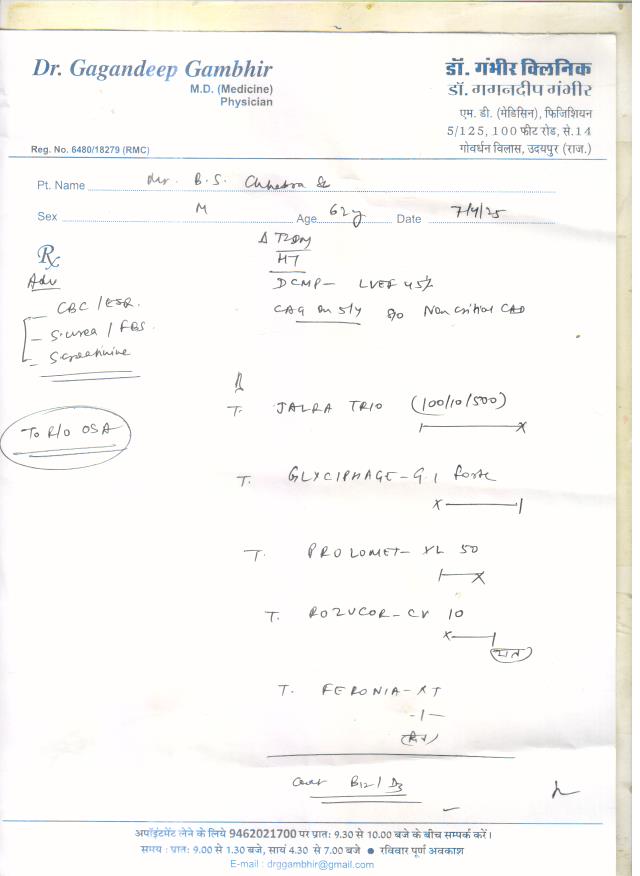 Dr. Gagandeep Gambhir
M.D. (Medicine)
Physician
Reg. No. 6480/18279 (RMC)
डॉ. गंभीर क्लिनिक
डॉ. गगनदीप गंभीर
एम. डी. (मेडिसिन), फिजिशियन
5/125, 100 फीट रोड, से.14
गोवर्धन विलास, उदयपुर (राज.)
Pt. Name Mr. B.S. Chhabra
Sex M Age 62y Date 7/4/25
Δ T2DM
HT
DCMP - LVEF 45%
CAG on 5/4 s/o Non critical CAD
Rx
Adv
CBC / ESR.
- S. urea / FBS
- S. creatinine
To R/O OSA
T. JALRA TRIO (100/10/500)
T. GLYCIPHAGE-G1 forte
T. PROLOMET-XL 50
T. ROZUCOR-CV 10
रात
T. FERONIA-XT
-1-
B12 / D3
अपॉइंटमेंट लेने के लिये 9462021700 पर प्रात: 9.30 से 10.00 बजे के बीच सम्पर्क करें।
समय : प्रात: 9.00 से 1.30 बजे, सायं 4.30 से 7.00 बजे ● रविवार पूर्ण अवकाश
E-mail : drggambhir@gmail.com